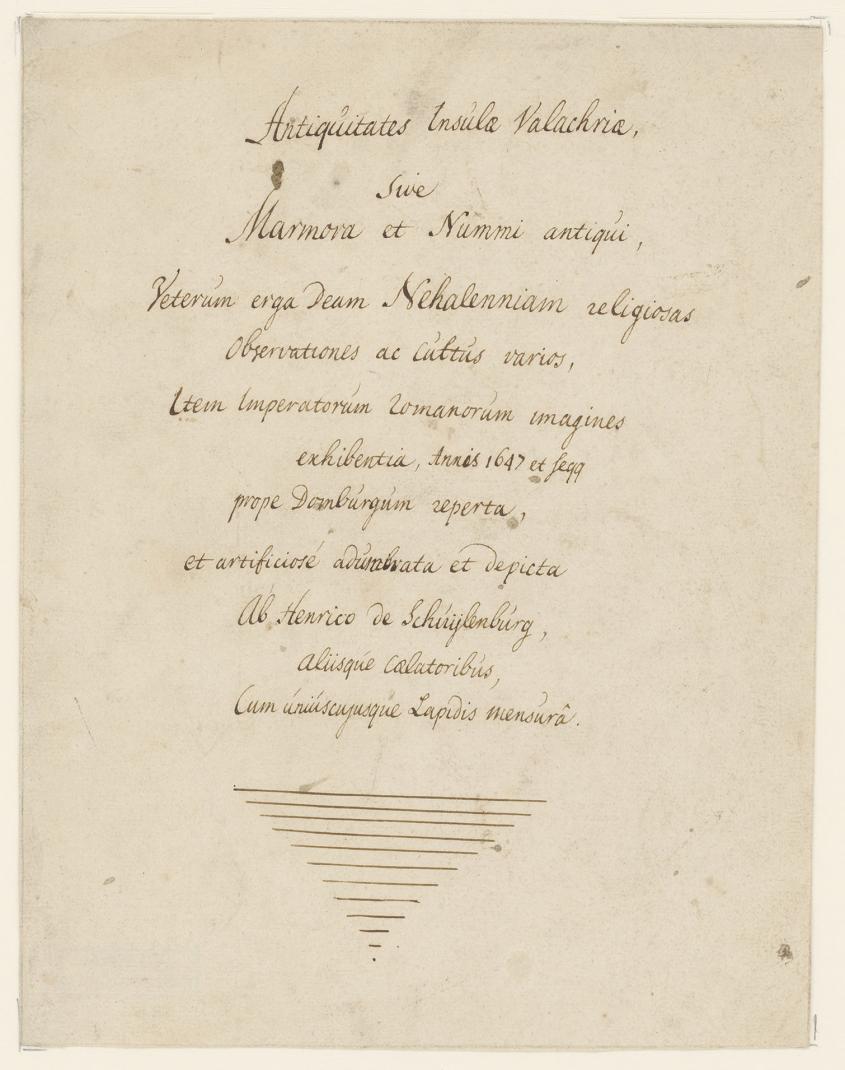 Antiquitates Insulæ Valachriæ,
Sive
Marmora et Nummi antiqui,
Veterum erga Deam Nehalenniam religiosas
Observationes ac Cultus varios,
Item Imperatorum Romanorum imagines
exhibentia, Annis 1647 et seqq
prope Domburgum reperta,
et artificiosé adumbrata et depicta
Ab Henrico de Schuÿlenburg,
aliisque Cælatoribus,
Cum uniuscujusque Lapidis mensurâ.